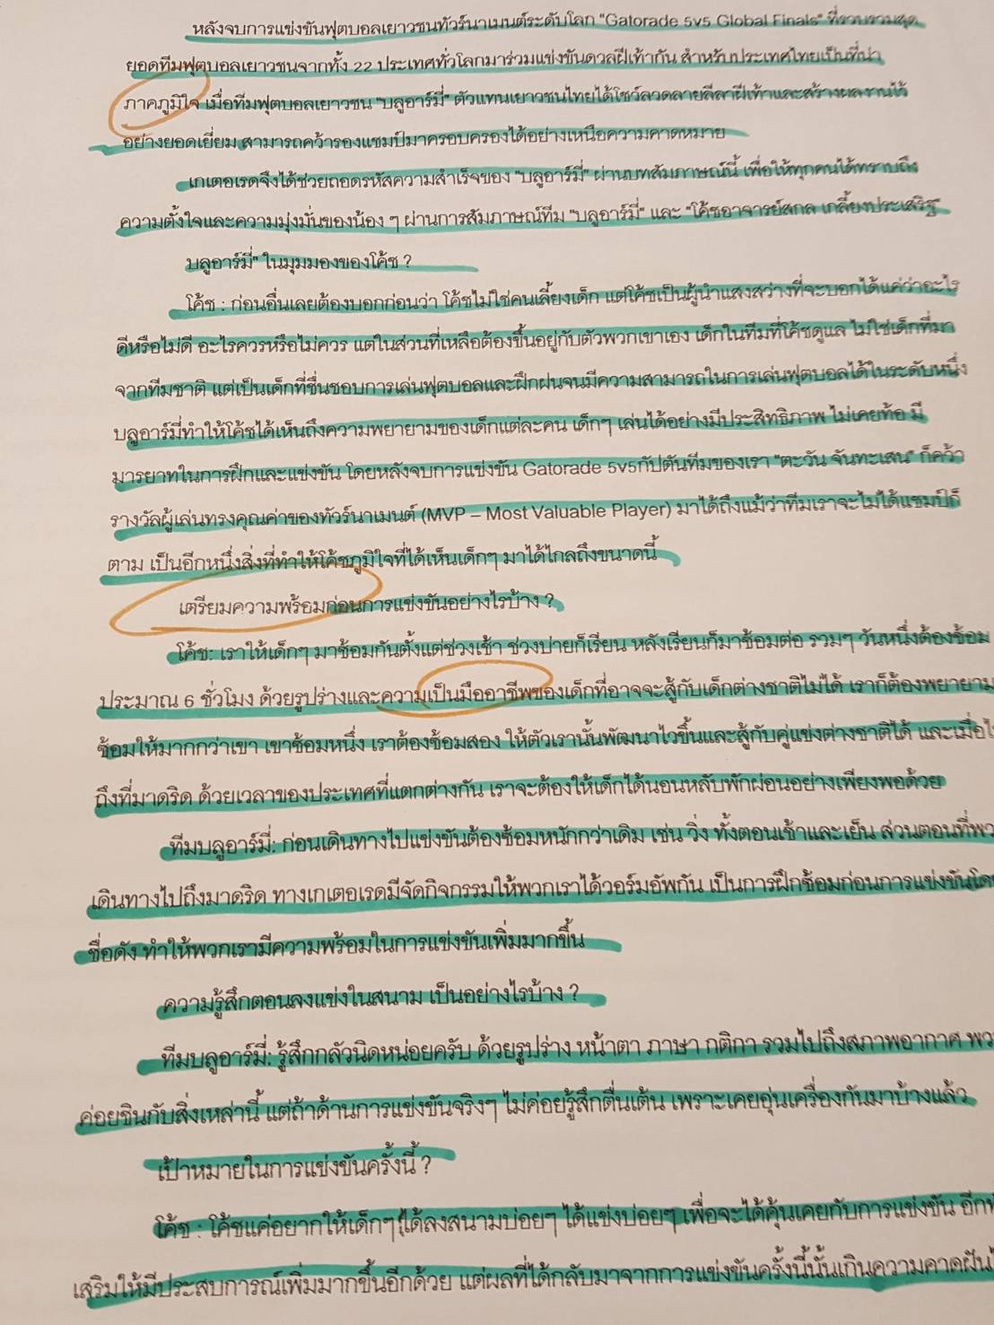 หลังจบการแข่งขันฟุตบอลเยาวชนทัวร์นาเมนต์ระดับโลก "Gatorade 5v5 Global Finals" ที่รวบรวมสุด
ยอดทีมฟุตบอลเยาวชนจากทั้ง 22 ประเทศทั่วโลกมาร่วมแข่งขันดวลฝีเท้ากัน สำหรับประเทศไทยเป็นที่น่า
ภาคภูมิใจ เมื่อทีมฟุตบอลเยาวชน "บลูอาร์มี่" ตัวแทนเยาวชนไทยได้โชว์ลวดลายลีลาฝีเท้าและสร้างผลงานไว้
อย่างยอดเยี่ยม สามารถคว้ารองแชมป์มาครอบครองได้อย่างเหนือความคาดหมาย
เกเตอเรดจึงได้ช่วยถอดรหัสความสำเร็จของ "บลูอาร์มี่" ผ่านบทสัมภาษณ์นี้ เพื่อให้ทุกคนได้ทราบถึง
ความตั้งใจและความมุ่งมั่นของน้อง ๆ ผ่านการสัมภาษณ์ทีม "บลูอาร์มี่" และ "โค้ชอาจารย์สกล เกลี้ยงประเสริฐ"
บลูอาร์มี่" ในมุมมองของโค้ช ?
โค้ช : ก่อนอื่นเลยต้องบอกก่อนว่า โค้ชไม่ใช่คนเลี้ยงเด็ก แต่โค้ชเป็นผู้นำแสงสว่างที่จะบอกได้แค่ว่าอะไร
ดีหรือไม่ดี อะไรควรหรือไม่ควร แต่ในส่วนที่เหลือต้องขึ้นอยู่กับตัวพวกเขาเอง เด็กในทีมที่โค้ชดูแล ไม่ใช่เด็กที่มา
จากทีมชาติ แต่เป็นเด็กที่ชื่นชอบการเล่นฟุตบอลและฝึกฝนจนมีความสามารถในการเล่นฟุตบอลได้ในระดับหนึ่ง
บลูอาร์มี่ทำให้โค้ชได้เห็นถึงความพยายามของเด็กแต่ละคน เด็กๆ เล่นได้อย่างมีประสิทธิภาพ ไม่เคยท้อ มี
มารยาทในการฝึกและแข่งขัน โดยหลังจบการแข่งขัน Gatorade 5v5กัปตันทีมของเรา "ตะวัน จันทะเสน" ก็คว้า
รางวัลผู้เล่นทรงคุณค่าของทัวร์นาเมนต์ (MVP – Most Valuable Player) มาได้ถึงแม้ว่าทีมเราจะไม่ได้แชมป์ก็
ตาม เป็นอีกหนึ่งสิ่งที่ทำให้โค้ชภูมิใจที่ได้เห็นเด็กๆ มาได้ไกลถึงขนาดนี้
เตรียมความพร้อมก่อนการแข่งขันอย่างไรบ้าง ?
โค้ช: เราให้เด็กๆ มาซ้อมกันตั้งแต่ช่วงเช้า ช่วงบ่ายก็เรียน หลังเรียนก็มาซ้อมต่อ รวมๆ วันหนึ่งต้องซ้อม
ประมาณ 6 ชั่วโมง ด้วยรูปร่างและความเป็นมืออาชีพของเด็กที่อาจจะสู้กับเด็กต่างชาติไม่ได้ เราก็ต้องพยายาม
ซ้อมให้มากกว่าเขา เขาซ้อมหนึ่ง เราต้องซ้อมสอง ให้ตัวเรานั้นพัฒนาไวขึ้นและสู้กับคู่แข่งต่างชาติได้ และเมื่อไ
ถึงที่มาดริด ด้วยเวลาของประเทศที่แตกต่างกัน เราจะต้องให้เด็กได้นอนหลับพักผ่อนอย่างเพียงพอด้วย
ทีมบลูอาร์มี่: ก่อนเดินทางไปแข่งขันต้องซ้อมหนักกว่าเดิม เช่น วิ่ง ทั้งตอนเช้าและเย็น ส่วนตอนที่พว
เดินทางไปถึงมาดริด ทางเกเตอเรดมีจัดกิจกรรมให้พวกเราได้วอร์มอัพกัน เป็นการฝึกซ้อมก่อนการแข่งขันโดย
ชื่อดัง ทำให้พวกเรามีความพร้อมในการแข่งขันเพิ่มมากขึ้น
ความรู้สึกตอนลงแข่งในสนาม เป็นอย่างไรบ้าง ?
ทีมบลูอาร์มี่: รู้สึกกลัวนิดหน่อยครับ ด้วยรูปร่าง หน้าตา ภาษา กติกา รวมไปถึงสภาพอากาศ พว
ค่อยชินกับสิ่งเหล่านี้ แต่ถ้าด้านการแข่งขันจริงๆ ไม่ค่อยรู้สึกตื่นเต้น เพราะเคยอุ่นเครื่องกันมาบ้างแล้ว
เป้าหมายในการแข่งขันครั้งนี้ ?
โค้ช : โค้ชแค่อยากให้เด็กๆ ได้ลงสนามบ่อยๆ ได้แข่งบ่อยๆ เพื่อจะได้คุ้นเคยกับการแข่งขัน อีกท
เสริมให้มีประสบการณ์เพิ่มมากขึ้นอีกด้วย แต่ผลที่ได้กลับมาจากการแข่งขันครั้งนี้นั้นเกินความคาดฝัน